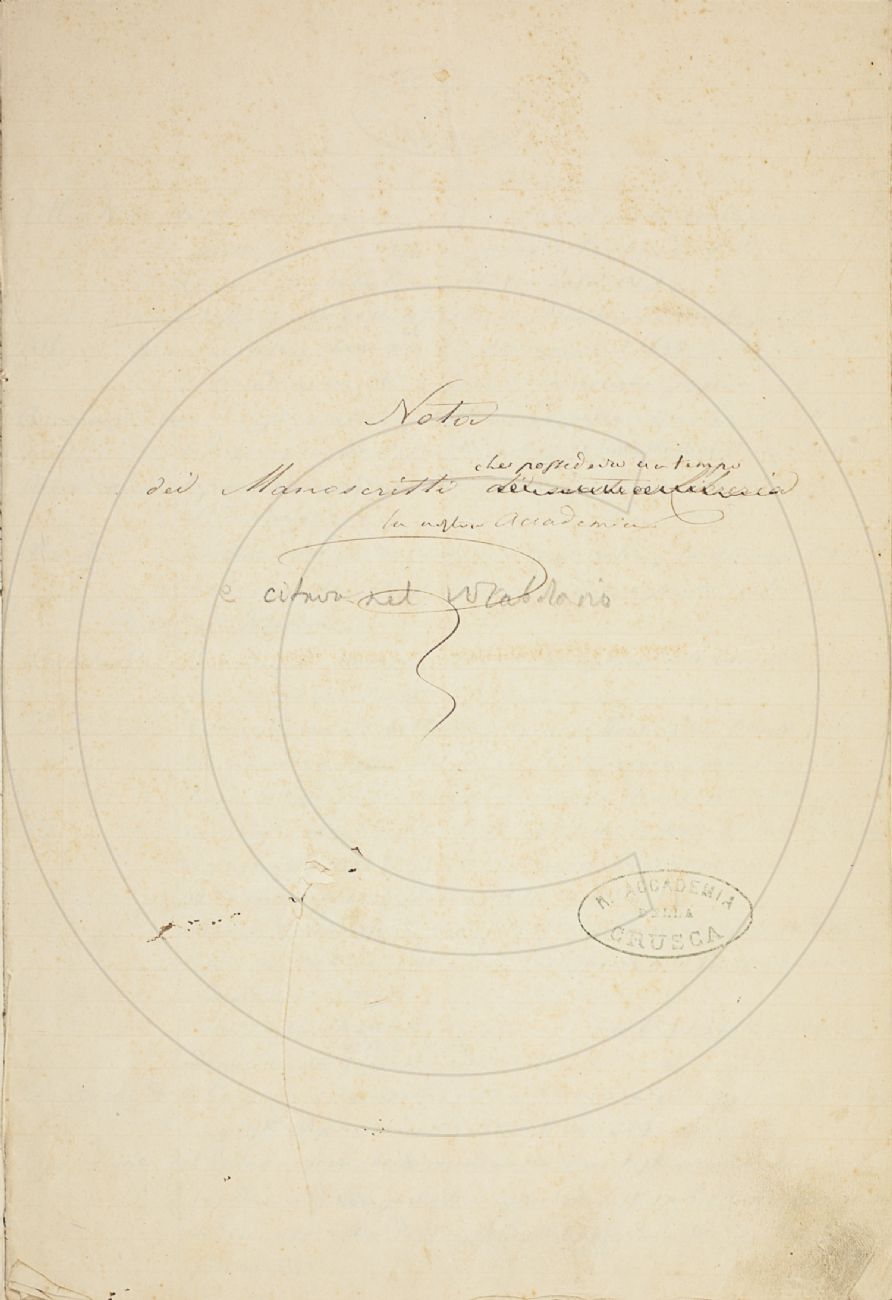 Nota
che possedeva un tempo
dei Manoscritti
la nostra Accademia
e citava nel Vocabolario
R. ACCADEMIA
DELLA
CRUSCA